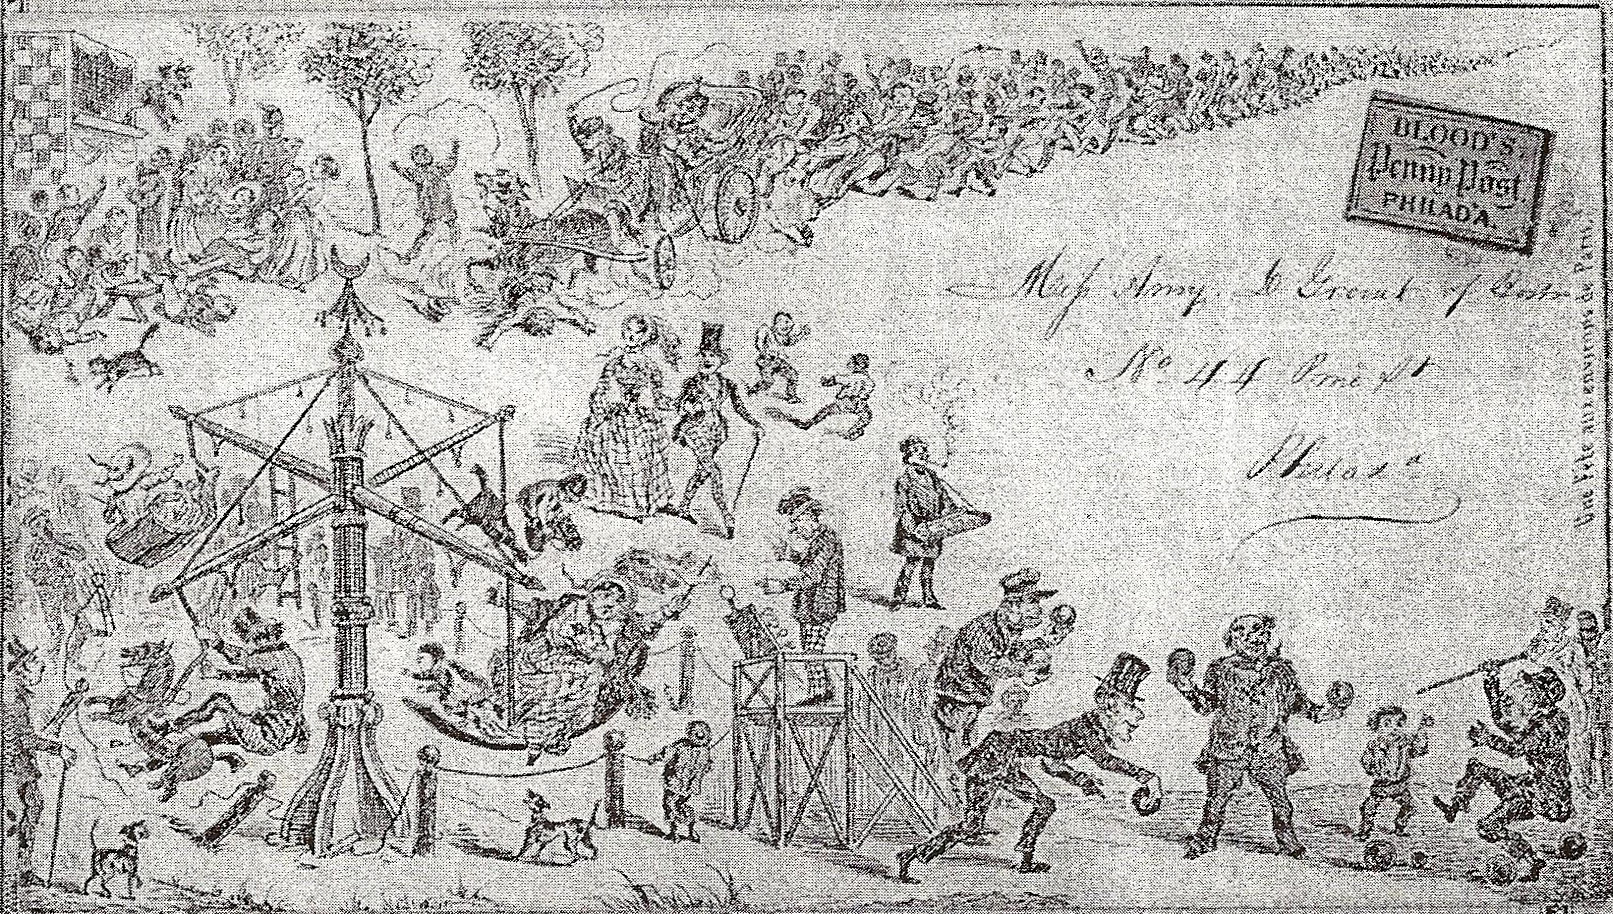 BLOOD'S
Penny Post.
PHILAD'A.
Miss Amy
No 44 Pine St
Philada
Une Fête aux environs de Paris.